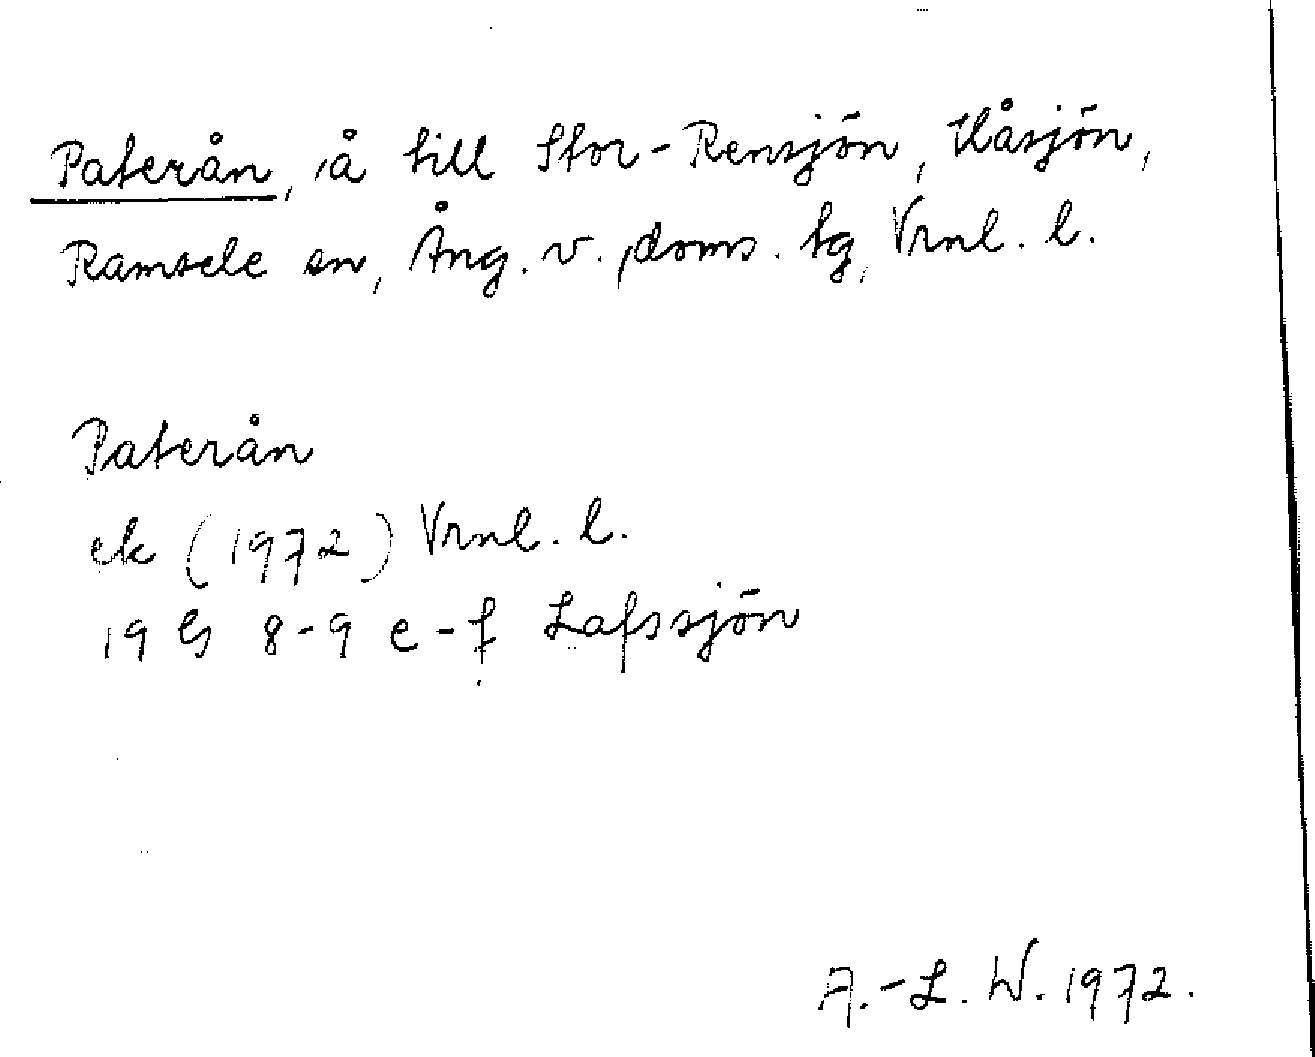 Paterån, å till Stor-Rensjön, Håsjön,
Ramsele sn, Ång. v. doms. tg, Vrnl. l.
Paterån
ek (1972) Vrnl. l.
19 G 8-9 e-f Lafssjön
A.-L. W. 1972.